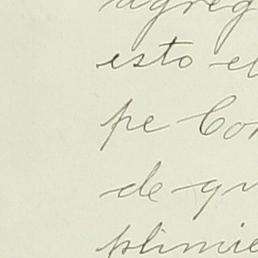 agreg
esto el
pe Con
de qu
plimie